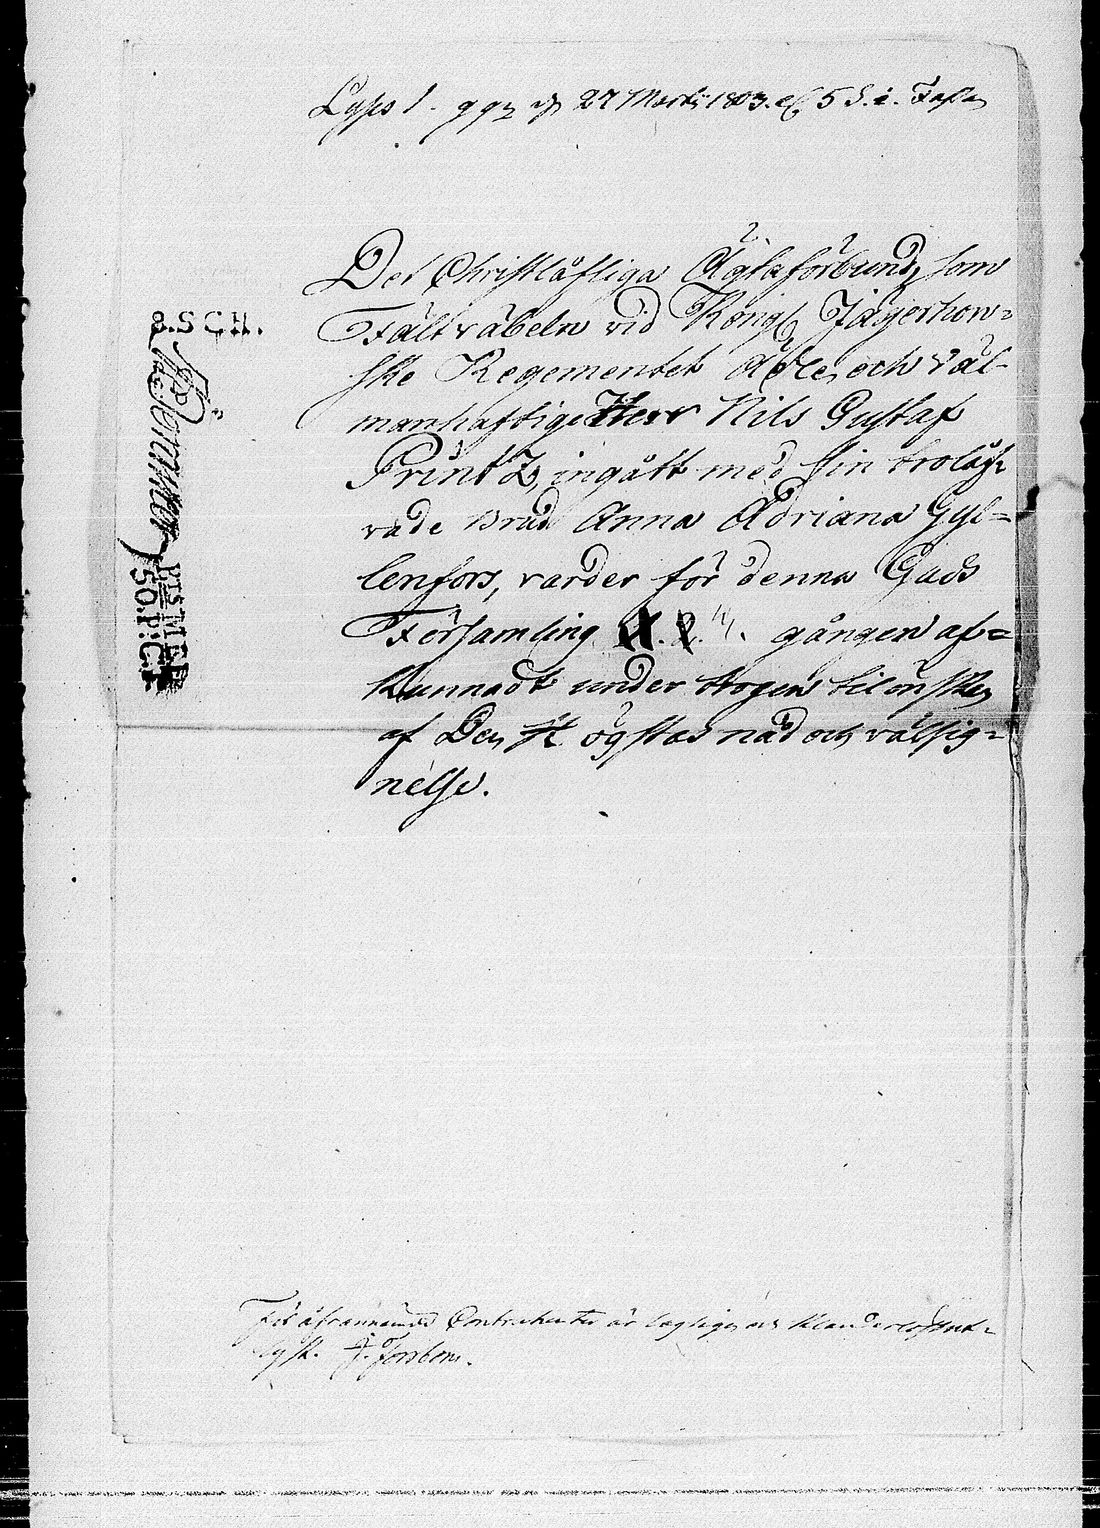 Lyses 1. gg 27 Martii 1803. 5 S. i. Fasta
Det Christlåfliga Ägtaförbund, som
Fältväbeln vid Kongl Jägerhorn-
ske Regementet Ädle, och Väl-
manhaftige Herr Nils Gustaf
Printz, ingått med sin trolåf-
vade Brud Anna Adriana Gyl-
lenfors, varder för denna Guds
Församling gången af-
kunnadt under trogen tilönskan
af Den Högstas nåd och välsig-
nelse.
8.SCH.
För åfvannämde Contrahenter är lagligen och klanderlöst lyst-
lyst. J. Forsbom.